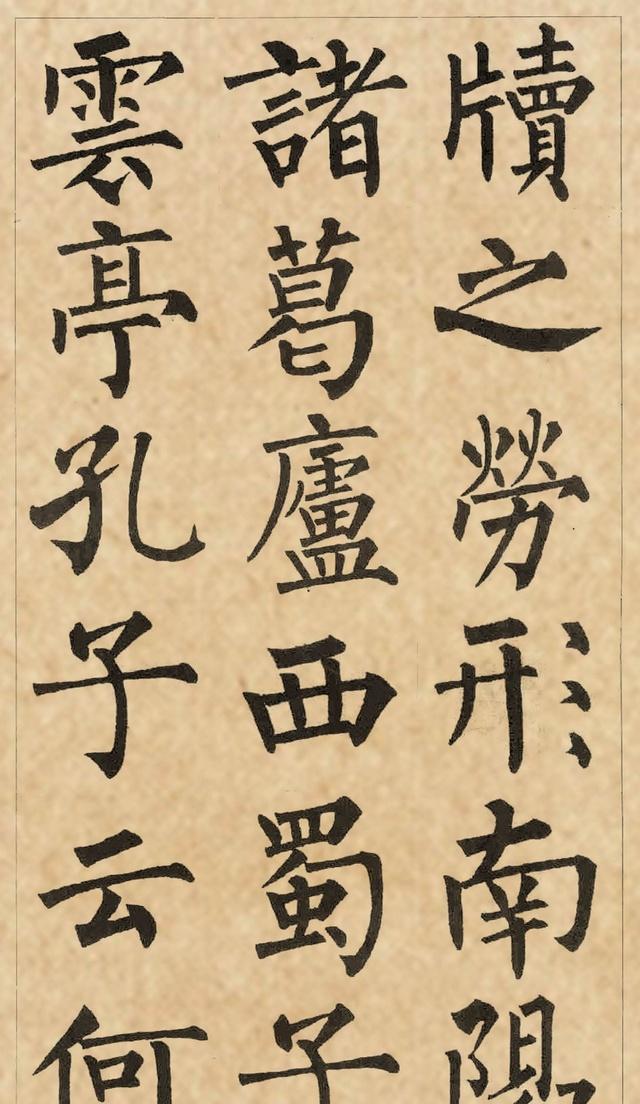 牘之勞形南陽
諸葛廬西蜀子
雲亭孔子云何